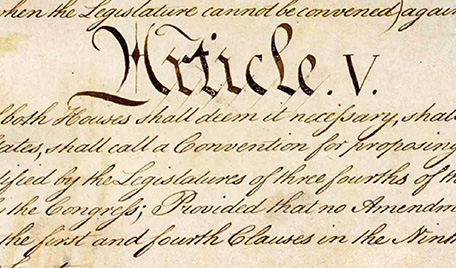 when the Legislature cannot be convened) again
Article. V.
both Houses shall deem it necessary, shal
ates, shall call a Convention for proposing
tified by the Legislatures of three fourths of th
the Congress; Provided that no Amendm
the first and fourth Clauses in the Nint